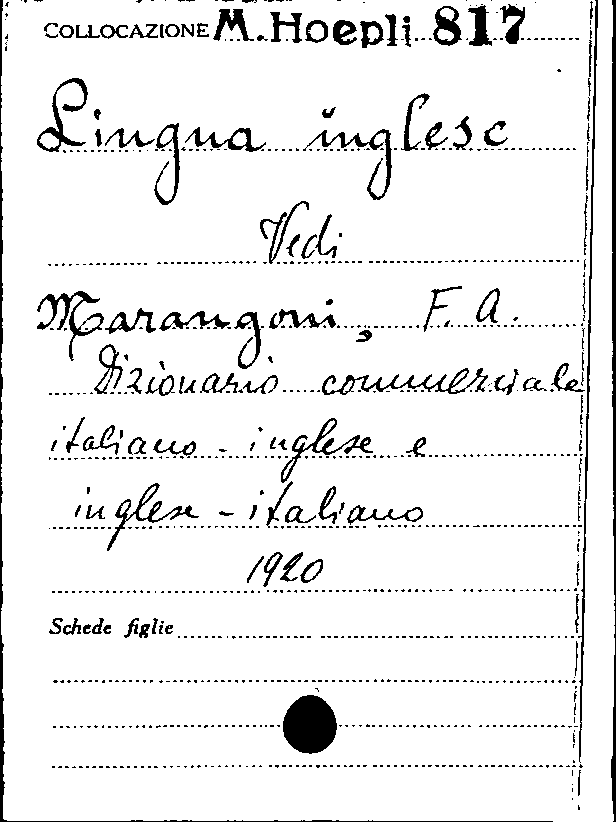 COLLOCAZIONE M. Hoepli 817
Lingua inglese
Vedi
Marangoni, F. A.
Dizionario commerciale
italiano - inglese e
inglese - italiano
1920
Schede figlie